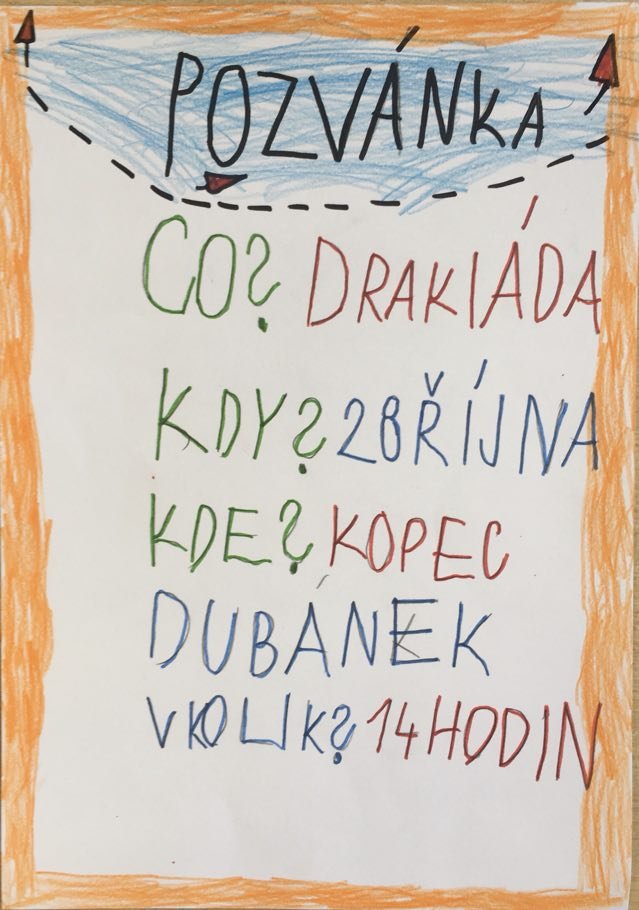 POZVÁNKA
CO? DRAKIÁDA
KDY? 28ŘÍJNA
KDE? KOPEC
DUBÁNEK
V KOLIK? 14HODIN